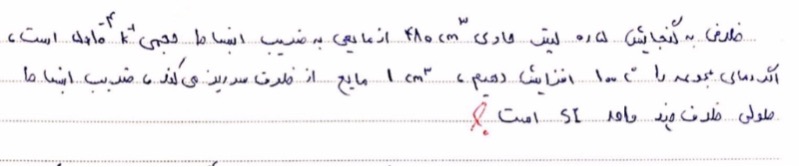 ظرفی به گنجایش ۵ر۰ لیتر حاوی ۴۸۰ cm³ از مایعی به ضریب انبساط حجمی ۵×۱۰⁻⁴ K⁻¹ است،
اگر دمای مجموعه را ۱۰۰ °C افزایش دهیم، ۱ cm³ مایع از ظرف سرریز می‌کند، ضریب انبساط
طولی ظرف چند واحد SI است؟